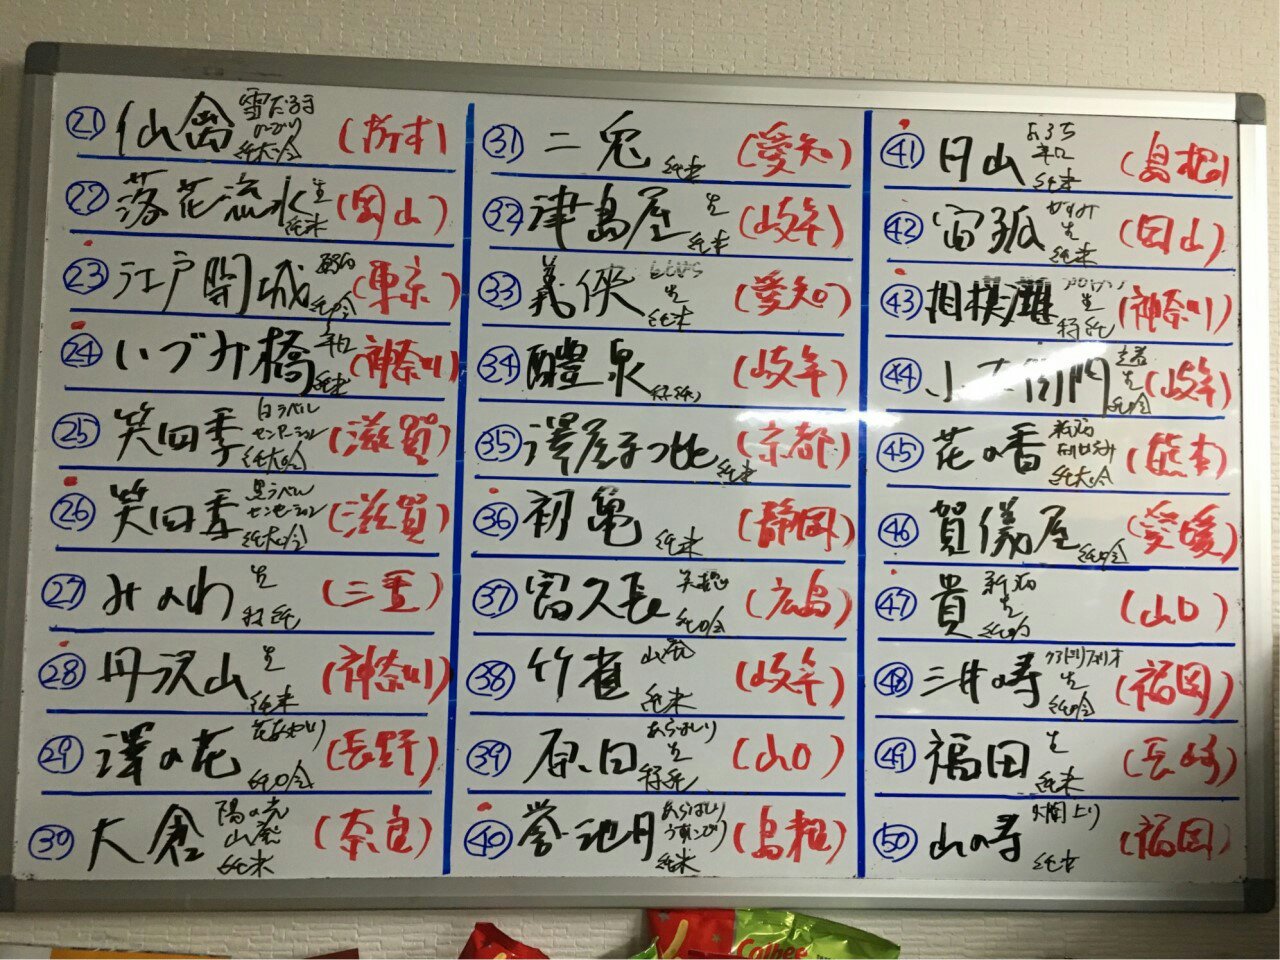 21 仙禽 雪だるま にごり 純大吟 (栃木)
22 落花流水 生 純米 (岡山)
23 江戸開城 純吟 (東京)
24 いづみ橋 辛口 純米 (神奈川)
25 笑四季 白ラベル センセーション 純大吟 (滋賀)
26 笑四季 黒ラベル センセーション 純大吟 (滋賀)
27 みのわ 生 特純 (三重)
28 丹沢山 生 純米 (神奈川)
29 澤の花 花あかり 純吟 (長野)
30 大倉 陽の光 山廃 純米 (奈良)
31 二兎 純米 (愛知)
32 津島屋 生 純米 (岐阜)
33 義侠 生 純米 (愛知)
34 醴泉 特純 (岐阜)
35 澤屋まつもと 純米 (京都)
36 初亀 純米 (静岡)
37 富久長 純吟 (広島)
38 竹雀 山廃 純米 (岐阜)
39 原田 あらばしり 生 特純 (山口)
40 誉池月 あらばしり うすにごり 純米 (島根)
41 月山 辛口 純米 (島根)
42 宙狐 かすみ 生 純米 (岡山)
43 相模灘 生 特純 (神奈川)
44 小左衛門 生 純吟 (岐阜)
45 花の香 新酒 純大吟 (熊本)
46 賀儀屋 純吟 (愛媛)
47 貴 新酒 生 純吟 (山口)
48 三井の寿 クアドリフォリオ 生 純吟 (福岡)
49 福田 生 純米 (長崎)
50 山の寿 純米 (福岡)
Calbee